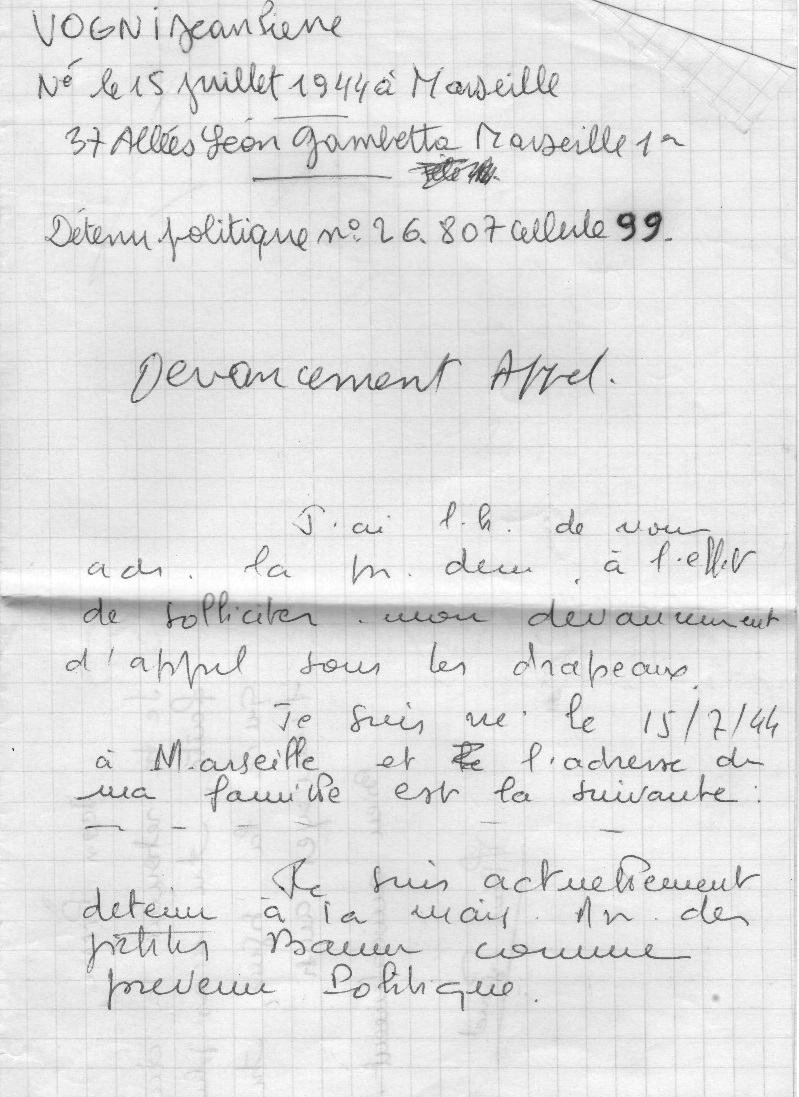 VOGNI Jean Pierre
Né le 15 Juillet 1944 à Marseille
37 Allées Léon Gambetta Marseille 1er
Détenu politique n° 26.807 cellule 99.
Devancement Appel.
J'ai l.h. de vous
adr. la pr. dem. à l'effet
de solliciter mon devancement
d'appel sous les drapeaux.
Je suis né le 15/7/44
à Marseille et l'adresse de
ma famille est la suivante :
— — — — —
Je suis actuellement
detenu à la mais. Ar. des
petites Baum comme
prevenu Politique.